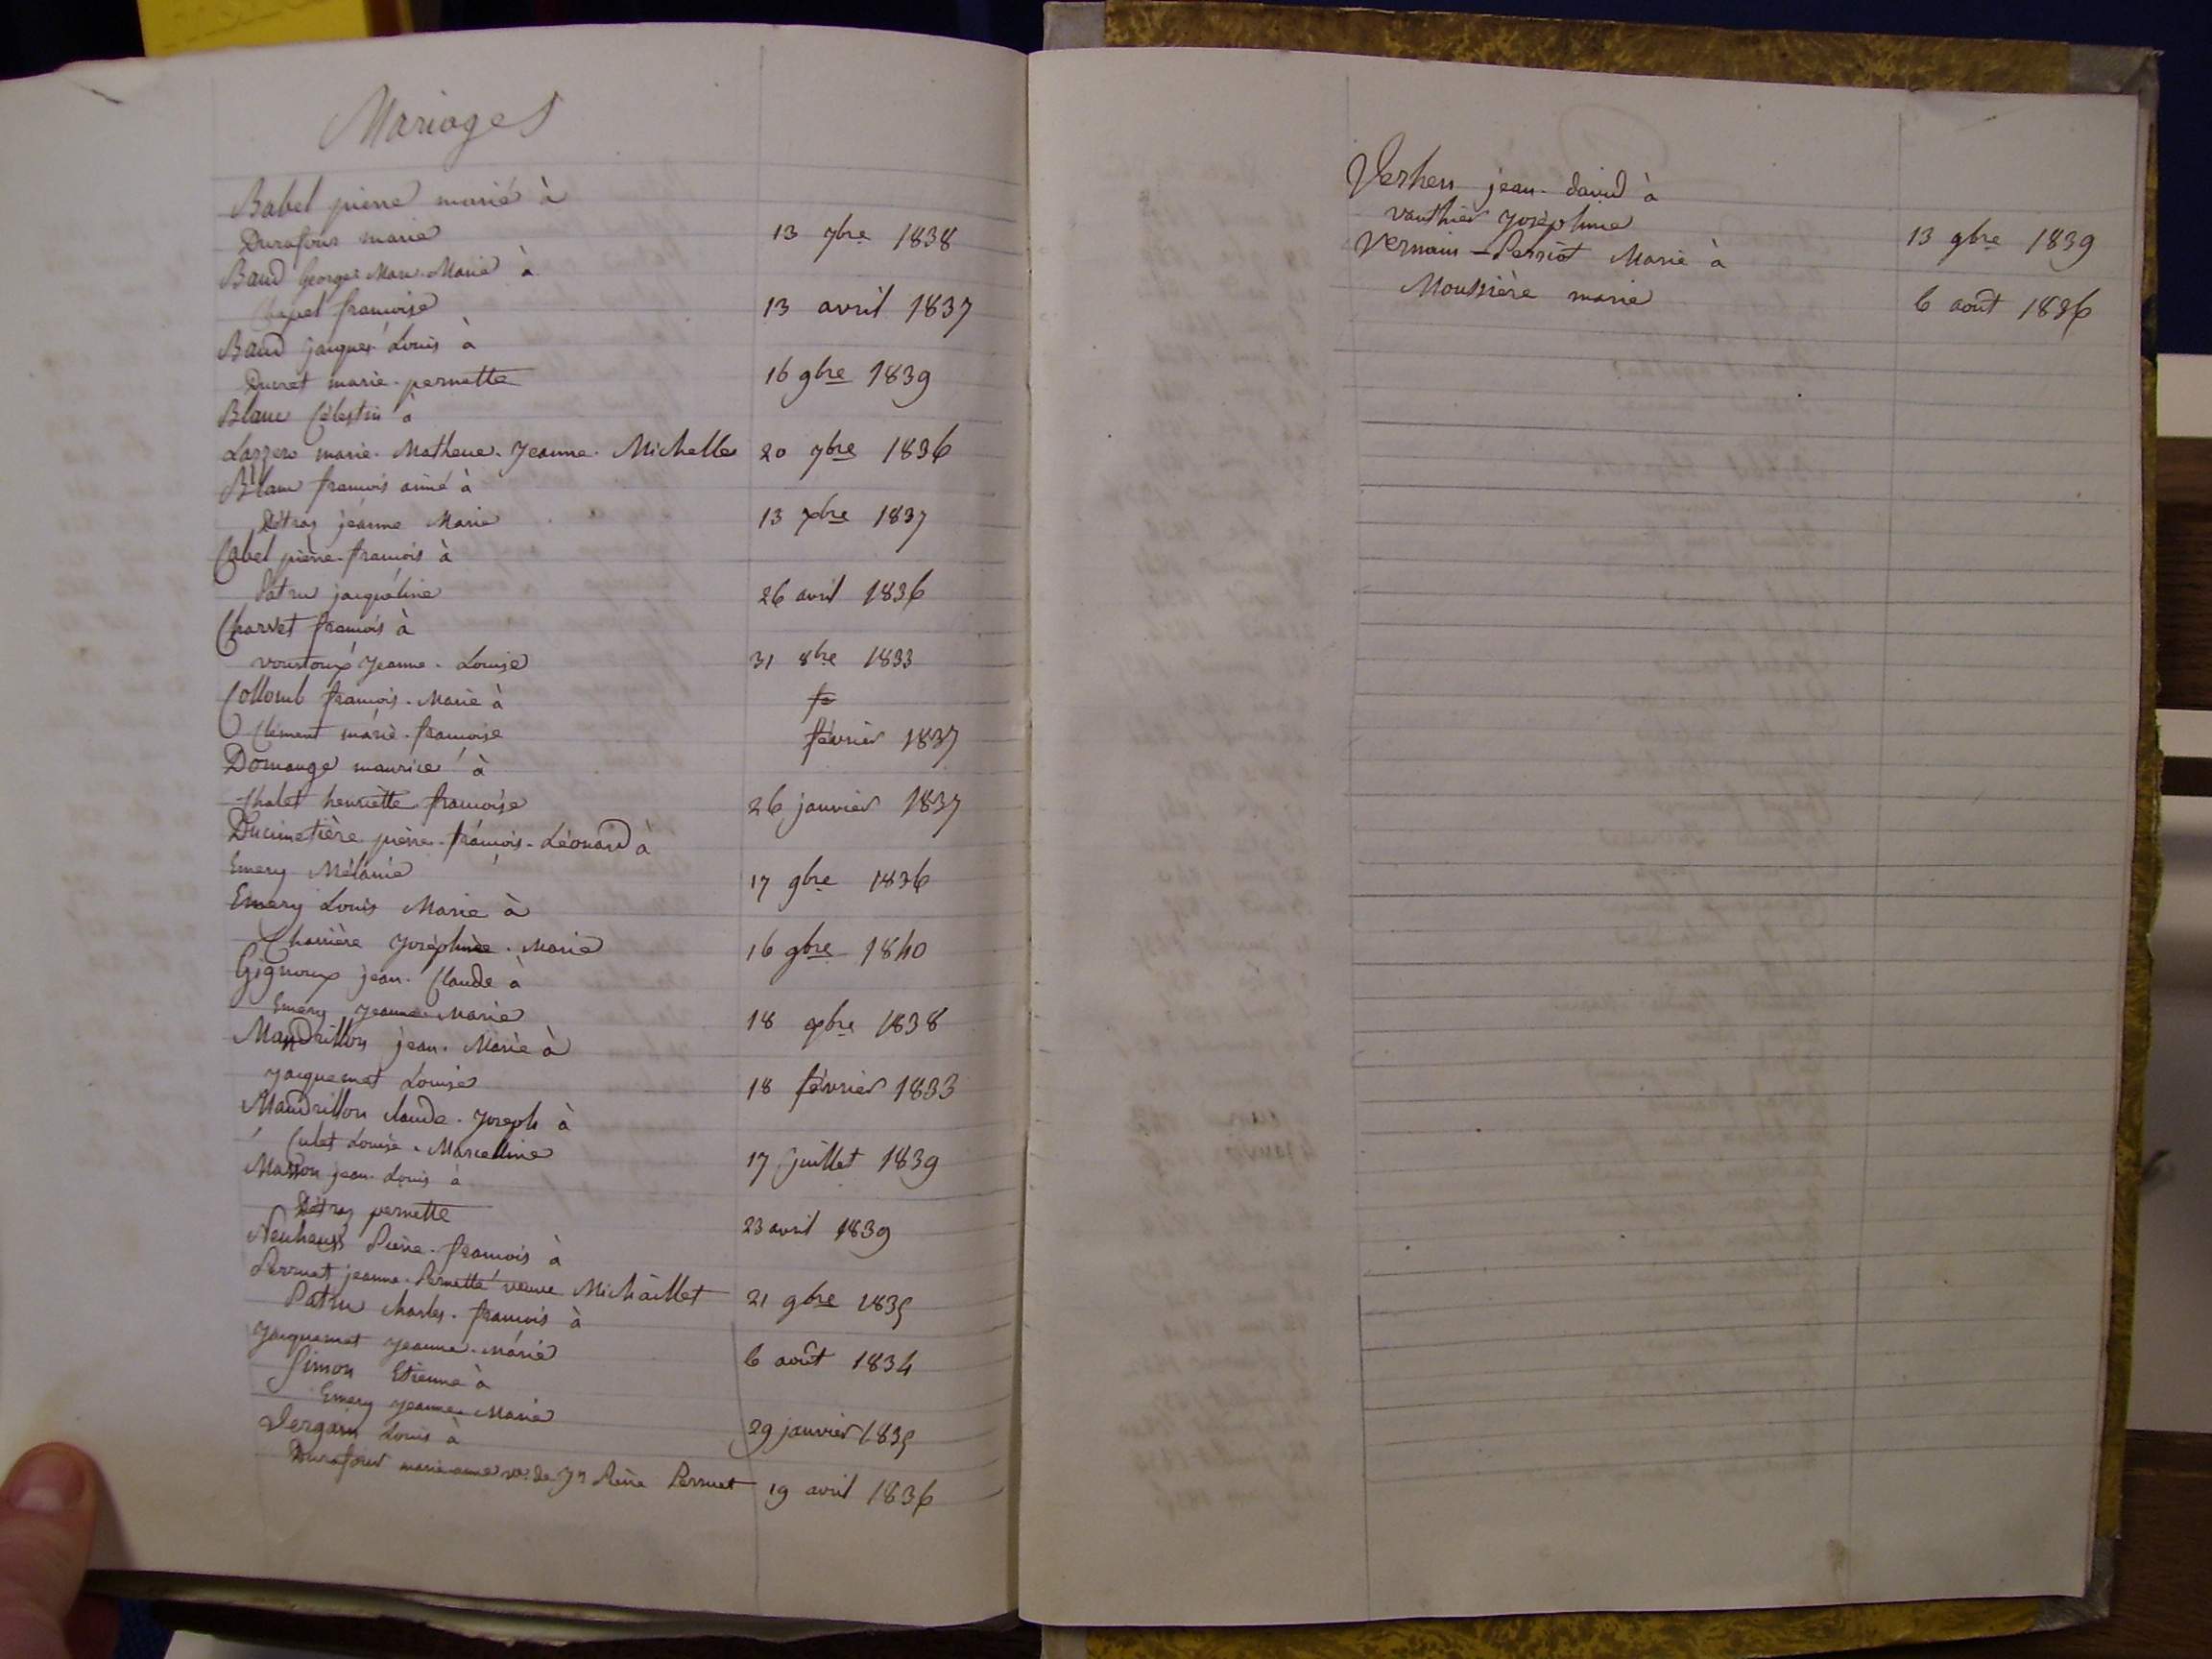 Mariages
Babel pierre marié à
Durafour marie 13 7bre 1838
Baud George Marc Marie à
Chapel françoise 13 avril 1837
Baud jaques Louis à
Ducret marie pernette 16 9bre 1839
Blanc Célestin à
marie Matheue Jeanne Michelle 20 7bre 1836
Blanc françois aimé à
Détraz jeanne Marie 13 Xbre 1837
Cabel pierre françois à
Patru jacqueline 26 avril 1836
Charvet françois à
Jeanne Louise 31 8bre 1833
Collomb françois Marie à
Clément marie françoise février 1837
Domange maurice à
Chalet henriette françoise 26 janvier 1837
Ducimetière pierre françois Léonard à
Emery Mélanie 17 9bre 1836
Emery Louis Marie à
Charrière Joséphine Marie 16 9bre 1840
Gignoux jean Claude à
Emery Jeanne Marie 18 Xbre 1838
Mandrillon jean Marie à
Jacquemet Louise 18 février 1833
Mandrillon claude Joseph à
Culet Louise Marcelline 17 juillet 1839
Masson jean Louis à
Détraz pernette 23 avril 1839
Neuhauss Pierre françois à
Perruet jeanne Pernette veuve Michaillet 21 9bre 1835
Patru charles françois à
Jacquemet Jeanne Marie 6 août 1834
Simon Etienne à
Emery Jeanne Marie 29 janvier 1835
Vergain Louis à
Durafour marie anne ve de Jn Pierre Perruet 19 avril 1836
Verhen jean david à
Vauthier Joséphine 13 9bre 1839
Vernain - Perriot Marie à
Moussière marie 6 août 1836